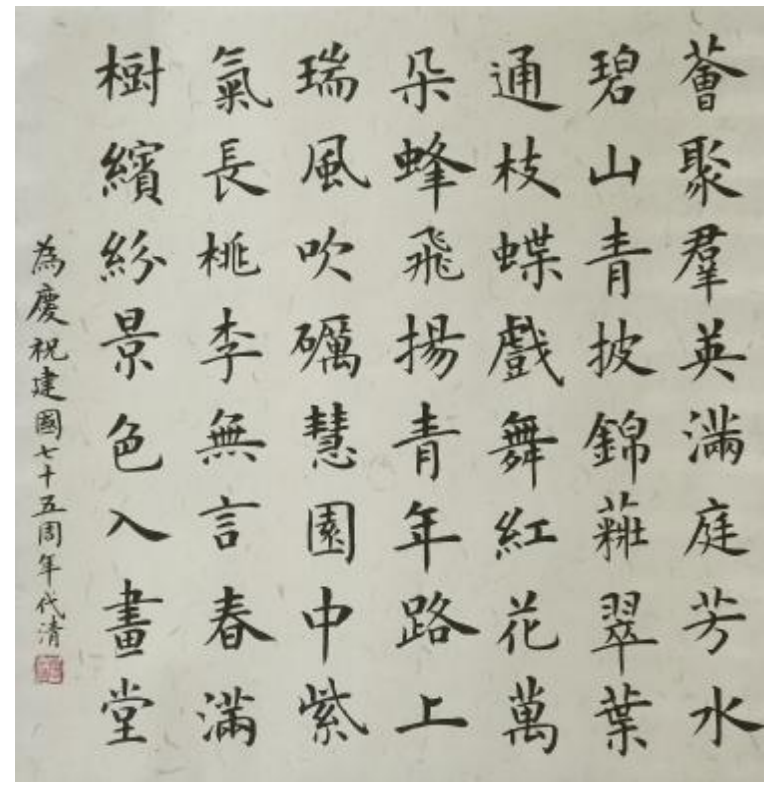 薈聚羣英滿庭芳水
碧山青披錦蘓翠葉
通枝蝶戲舞紅花萬
朵蜂飛揚青年路上
瑞風吹礪慧園中紫
氣長桃李無言春滿
樹繽紛景色入畫堂
為慶祝建國七十五周年代清